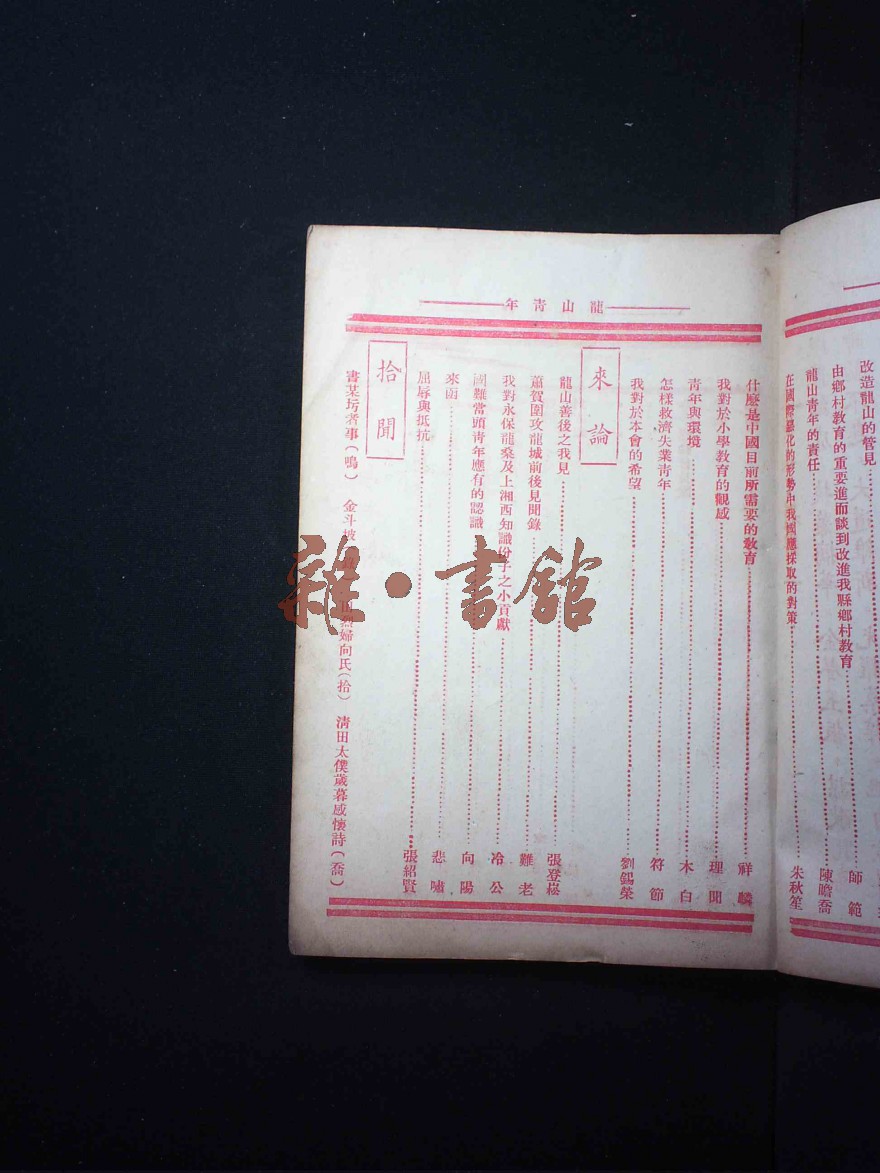 改造龍山的管見
由鄉村教育的重要進而談到改進我縣鄉村教育 師範
龍山青年的責任 陳瞻喬
在國際變化的形勢中我國應採取的對策 朱秋笙
龍山青年
什麼是中國目前所需要的教育 祥麟
我對於小學教育的觀感 理聞
青年與環境 木白
怎樣救濟失業青年 符節
我對於本會的希望 劉錫榮
來論
龍山善後之我見 張登崧
蕭賀圍攻龍城前後見聞錄 難老
我對永保龍桑及上湘西知識份子之小貢獻 冷公
國難當頭青年應有的認識 向陽
來函 悲嘯
屈辱與抵抗 張紹賢
拾聞
書某圬者事(鳴) 金斗坡 烈婦向氏(拾) 清田太僕歲暮感懷詩(喬)
雜·書館